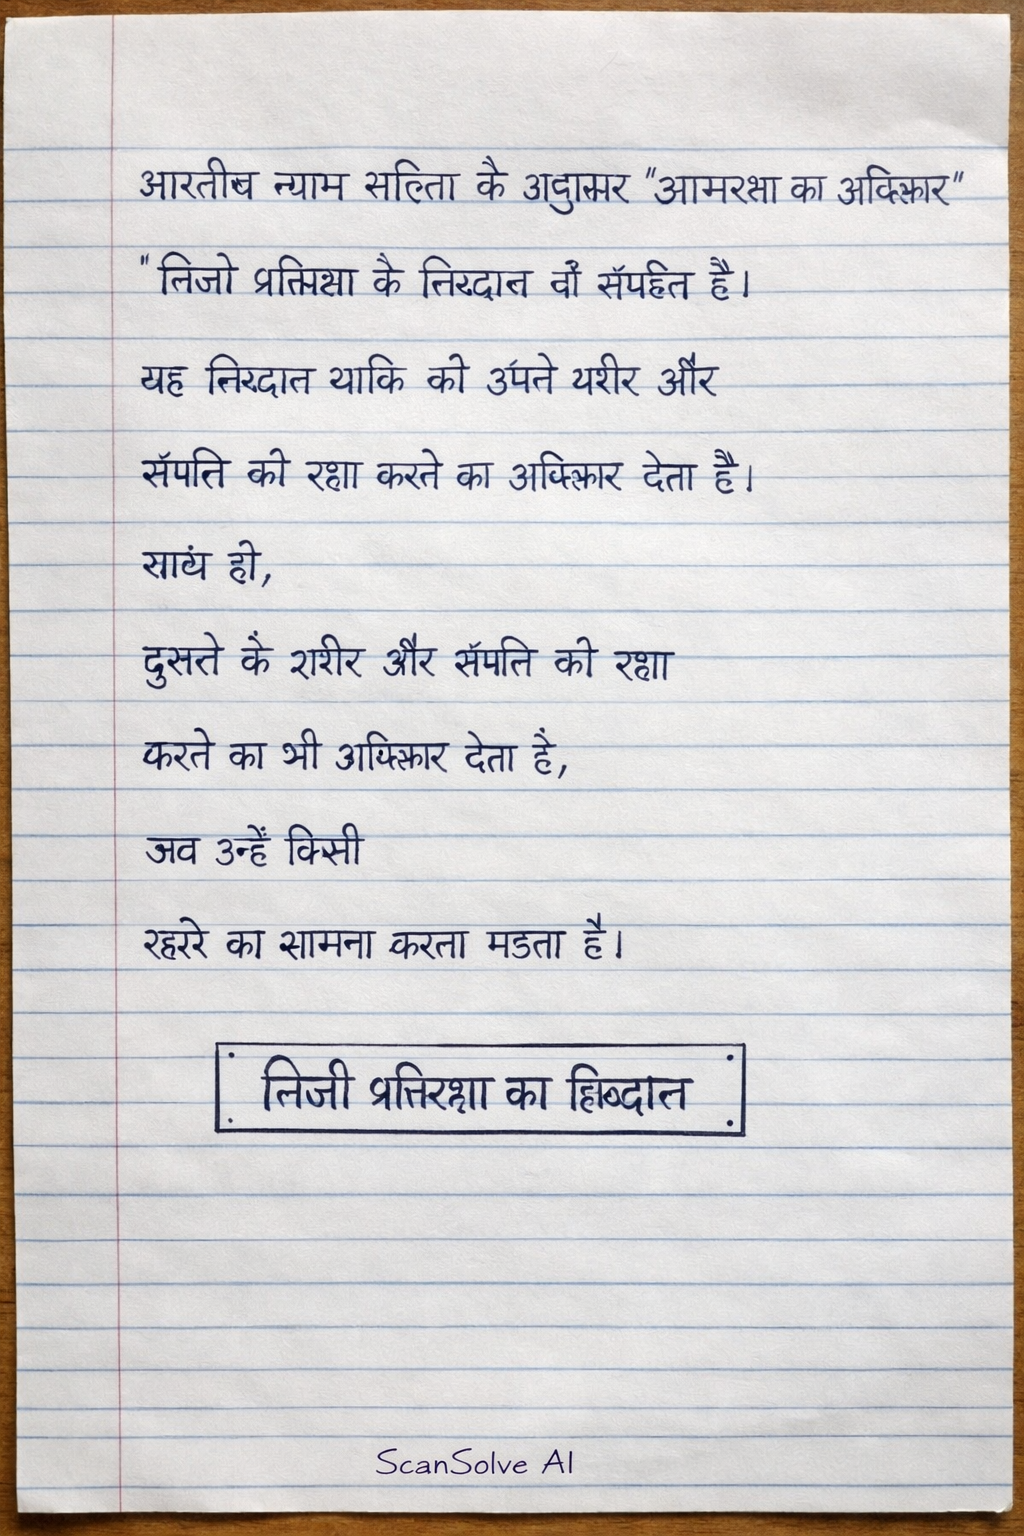 आरतीब न्याम सल्तिा कै अद्वात्मर "आमरक्षा का अक्त्किार"
"तिजो प्रत्मिक्षा के तिरदान वों संपर्हत है।
यह तिरदात याकि को उंपने यरीर और
संपति को रक्षा करते का अक्त्किार देता है।
साथं हो,
दुसते कें शरीर और संपति को रक्षा
करते का भी अक्त्किार देता हें,
जव उन्हें किसी
रहररे का सामना करता मडता है।
तिजी प्रतिरक्षा का दान
ScanSolve AI